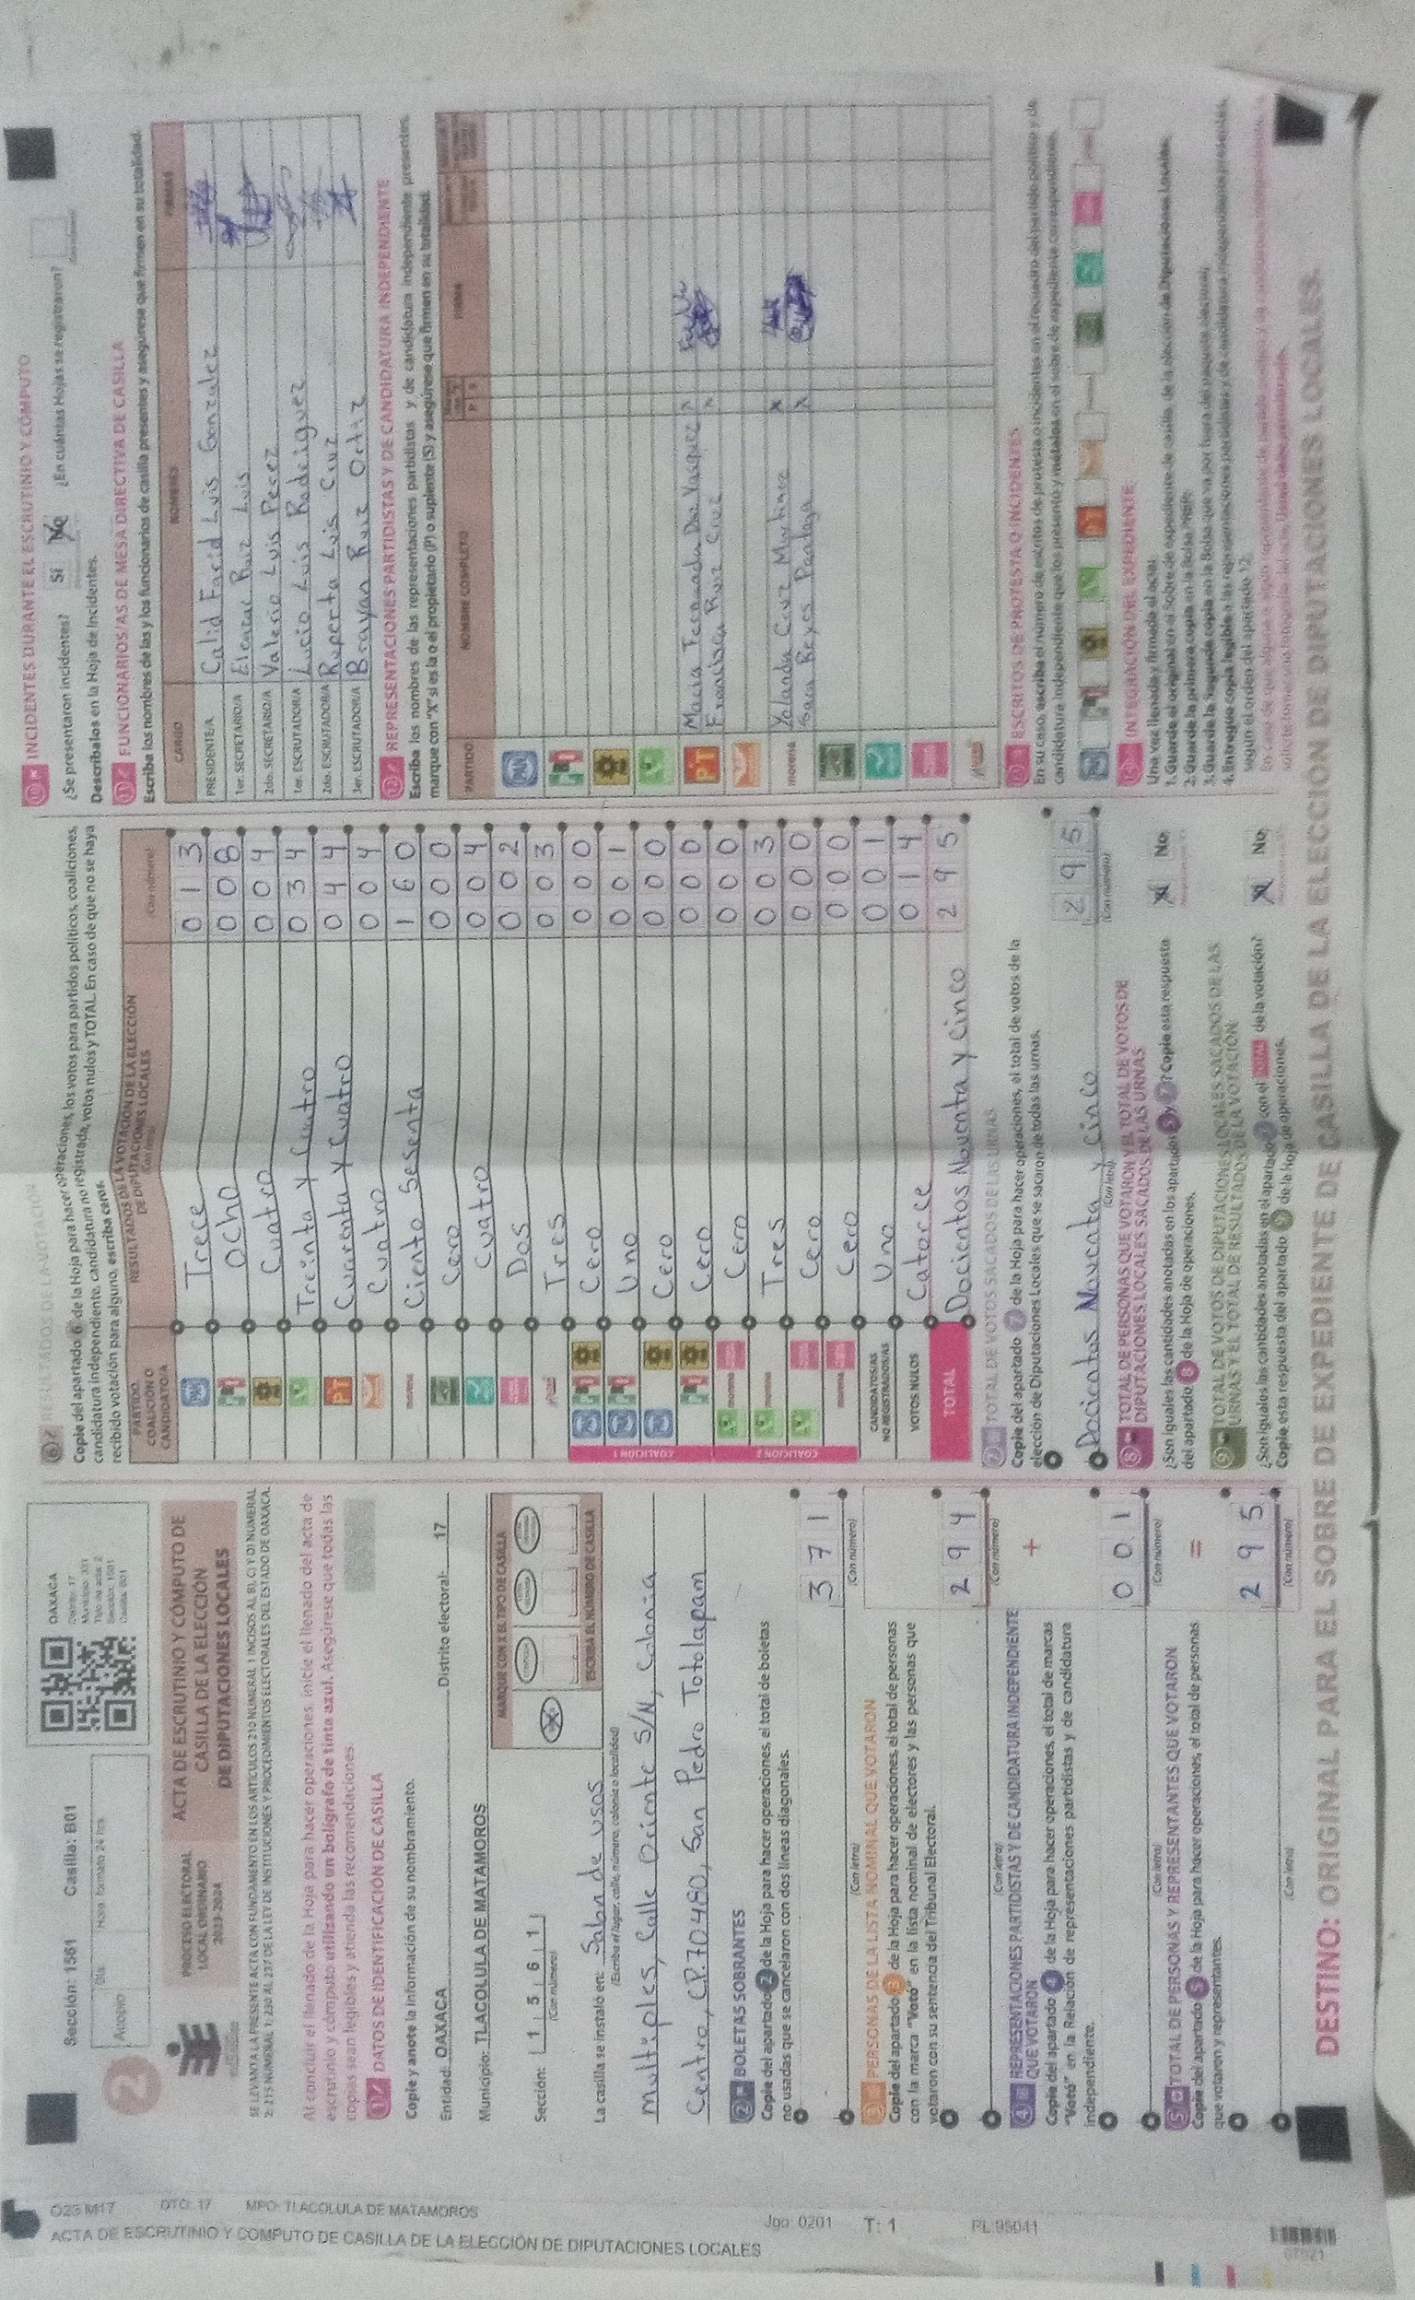 Sección: 1561 Casilla: B01
OAXACA
Distrito: 17
Municipio: 331
Sección: 1561
Casilla: B01
2
Acopio
Día:
Hora: formato 24 hrs
PROCESO ELECTORAL
LOCAL ORDINARIO
2023-2024
ACTA DE ESCRUTINIO Y CÓMPUTO DE
CASILLA DE LA ELECCIÓN
DE DIPUTACIONES LOCALES
SE LEVANTA LA PRESENTE ACTA CON FUNDAMENTO EN LOS ARTÍCULOS 210 NUMERAL 1 INCISOS A), B), C) Y D) NUMERAL
2; 215 NUMERAL 1; 230 AL 237 DE LA LEY DE INSTITUCIONES Y PROCEDIMIENTOS ELECTORALES DEL ESTADO DE OAXACA.
Al concluir el llenado de la Hoja para hacer operaciones, inicie el llenado del acta de
escrutinio y cómputo utilizando un bolígrafo de tinta azul. Asegúrese que todas las
copias sean legibles y atienda las recomendaciones.
1 DATOS DE IDENTIFICACIÓN DE CASILLA
Copie y anote la información de su nombramiento.
Entidad: OAXACA Distrito electoral: 17
Municipio: TLACOLULA DE MATAMOROS
MARQUE CON X EL TIPO DE CASILLA
Sección: 1 5 6 1
(Con número)
ESCRIBA EL NÚMERO DE CASILLA
La casilla se instaló en: Salon de usos
(Escriba el lugar, calle, número, colonia o localidad)
multiples, Calle Oriente S/N, Colonia
Centro, C.P.70480, San Pedro Totolapam
2 BOLETAS SOBRANTES
Copie del apartado 2 de la Hoja para hacer operaciones, el total de boletas
no usadas que se cancelaron con dos líneas diagonales.
3 7 1
(Con letra) (Con número)
3 PERSONAS DE LA LISTA NOMINAL QUE VOTARON
Copie del apartado 3 de la Hoja para hacer operaciones, el total de personas
con la marca "Votó" en la lista nominal de electores y las personas que
votaron con su sentencia del Tribunal Electoral.
2 9 4
(Con letra) (Con número)
4 REPRESENTACIONES PARTIDISTAS Y DE CANDIDATURA INDEPENDIENTE
QUE VOTARON
+
Copie del apartado 4 de la Hoja para hacer operaciones, el total de marcas
"Votó" en la Relación de representaciones partidistas y de candidatura
independiente.
0 0 1
(Con letra) (Con número)
5 TOTAL DE PERSONAS Y REPRESENTANTES QUE VOTARON
=
Copie del apartado 5 de la Hoja para hacer operaciones, el total de personas
que votaron y representantes.
2 9 5
(Con letra) (Con número)
6 RESULTADOS DE LA VOTACIÓN
Copie del apartado 6 de la Hoja para hacer operaciones, los votos para partidos políticos, coaliciones,
candidatura independiente, candidatura no registrada, votos nulos y TOTAL. En caso de que no se haya
recibido votación para alguno, escriba ceros.
PARTIDO, COALICIÓN O CANDIDATO/A
RESULTADOS DE LA VOTACIÓN DE LA ELECCIÓN
DE DIPUTACIONES LOCALES
(Con letra) (Con número)
PAN Trece 0 1 3
PRI Ocho 0 0 8
Cuatro 0 0 4
Treinta y Cuatro 0 3 4
PT Cuarenta y Cuatro 0 4 4
Cuatro 0 0 4
morena Ciento Sesenta 1 6 0
Cero 0 0 0
Cuatro 0 0 4
Dos 0 0 2
Tres 0 0 3
COALICIÓN 1
Cero 0 0 0
Uno 0 0 1
Cero 0 0 0
Cero 0 0 0
COALICIÓN 2
morena Cero 0 0 0
morena Tres 0 0 3
Cero 0 0 0
morena Cero 0 0 0
CANDIDATOS/AS
NO REGISTRADOS/AS Uno 0 0 1
VOTOS NULOS Catorce 0 1 4
TOTAL Docientos Noventa y Cinco 2 9 5
7 TOTAL DE VOTOS SACADOS DE LAS URNAS
Copie del apartado 7 de la Hoja para hacer operaciones, el total de votos de la
elección de Diputaciones Locales que se sacaron de todas las urnas.
Docientos Noventa y Cinco 2 9 5
(Con letra) (Con número)
8 TOTAL DE PERSONAS QUE VOTARON Y EL TOTAL DE VOTOS DE
DIPUTACIONES LOCALES SACADOS DE LAS URNAS
¿Son iguales las cantidades anotadas en los apartados 5 y 7? Copie esta respuesta
del apartado 8 de la Hoja de operaciones.
Sí No
9 TOTAL DE VOTOS DE DIPUTACIONES LOCALES SACADOS DE LAS
URNAS Y EL TOTAL DE RESULTADOS DE LA VOTACIÓN
¿Son iguales las cantidades anotadas en el apartado 7 con el TOTAL de la votación?
Copie esta respuesta del apartado 9 de la Hoja de operaciones.
Sí No
10 INCIDENTES DURANTE EL ESCRUTINIO Y CÓMPUTO
¿Se presentaron incidentes? Sí No ¿En cuántas Hojas se registraron?
Descríbalos en la Hoja de Incidentes.
11 FUNCIONARIOS/AS DE MESA DIRECTIVA DE CASILLA
Escriba los nombres de las y los funcionarios de casilla presentes y asegúrese que firmen en su totalidad.
CARGO NOMBRES FIRMAS
PRESIDENTE/A Calid Farid Luis Gonzalez
1er. SECRETARIO/A Eleazar Ruiz Luis
2do. SECRETARIO/A Valerio Luis Perez
1er. ESCRUTADOR/A Lucio Luis Rodriguez
2do. ESCRUTADOR/A Ruperta Luis Cruz
3er. ESCRUTADOR/A Brayan Ruiz Ortiz
12 REPRESENTACIONES PARTIDISTAS Y DE CANDIDATURA INDEPENDIENTE
Escriba los nombres de las representaciones partidistas y de candidatura independiente presentes,
marque con "X" si es la o el propietario (P) o suplente (S) y asegúrese que firmen en su totalidad.
PARTIDO NOMBRE COMPLETO FIRMA
PAN
PRI
PT Maria Fernanda Vasquez X
Francisca Ruiz Cruz X
morena Yolanda Cruz Martinez X
Sara Reyes Pantoja X
13 ESCRITOS DE PROTESTA O INCIDENTES
En su caso, escriba el número de escritos de protesta o incidentes en el recuadro del partido político y de
candidatura independiente que los presentó y métalos en el sobre de expediente correspondiente.
14 INTEGRACIÓN DEL EXPEDIENTE
Una vez llenada y firmada el acta:
1. Guarde el original en el Sobre de expediente de casilla de la elección de Diputaciones Locales.
2. Guarde la primera copia en la Bolsa PREP.
3. Guarde la segunda copia en la Bolsa que va por fuera del paquete electoral.
4. Entregue copia legible a las representaciones partidistas y de candidatura independiente presentes,
según el orden del apartado 12.
DESTINO: ORIGINAL PARA EL SOBRE DE EXPEDIENTE DE CASILLA DE LA ELECCIÓN DE DIPUTACIONES LOCALES.
DTO: 17 MPO: TLACOLULA DE MATAMOROS
ACTA DE ESCRUTINIO Y COMPUTO DE CASILLA DE LA ELECCIÓN DE DIPUTACIONES LOCALES
Jgo: 0201 T: 1 PL:95041